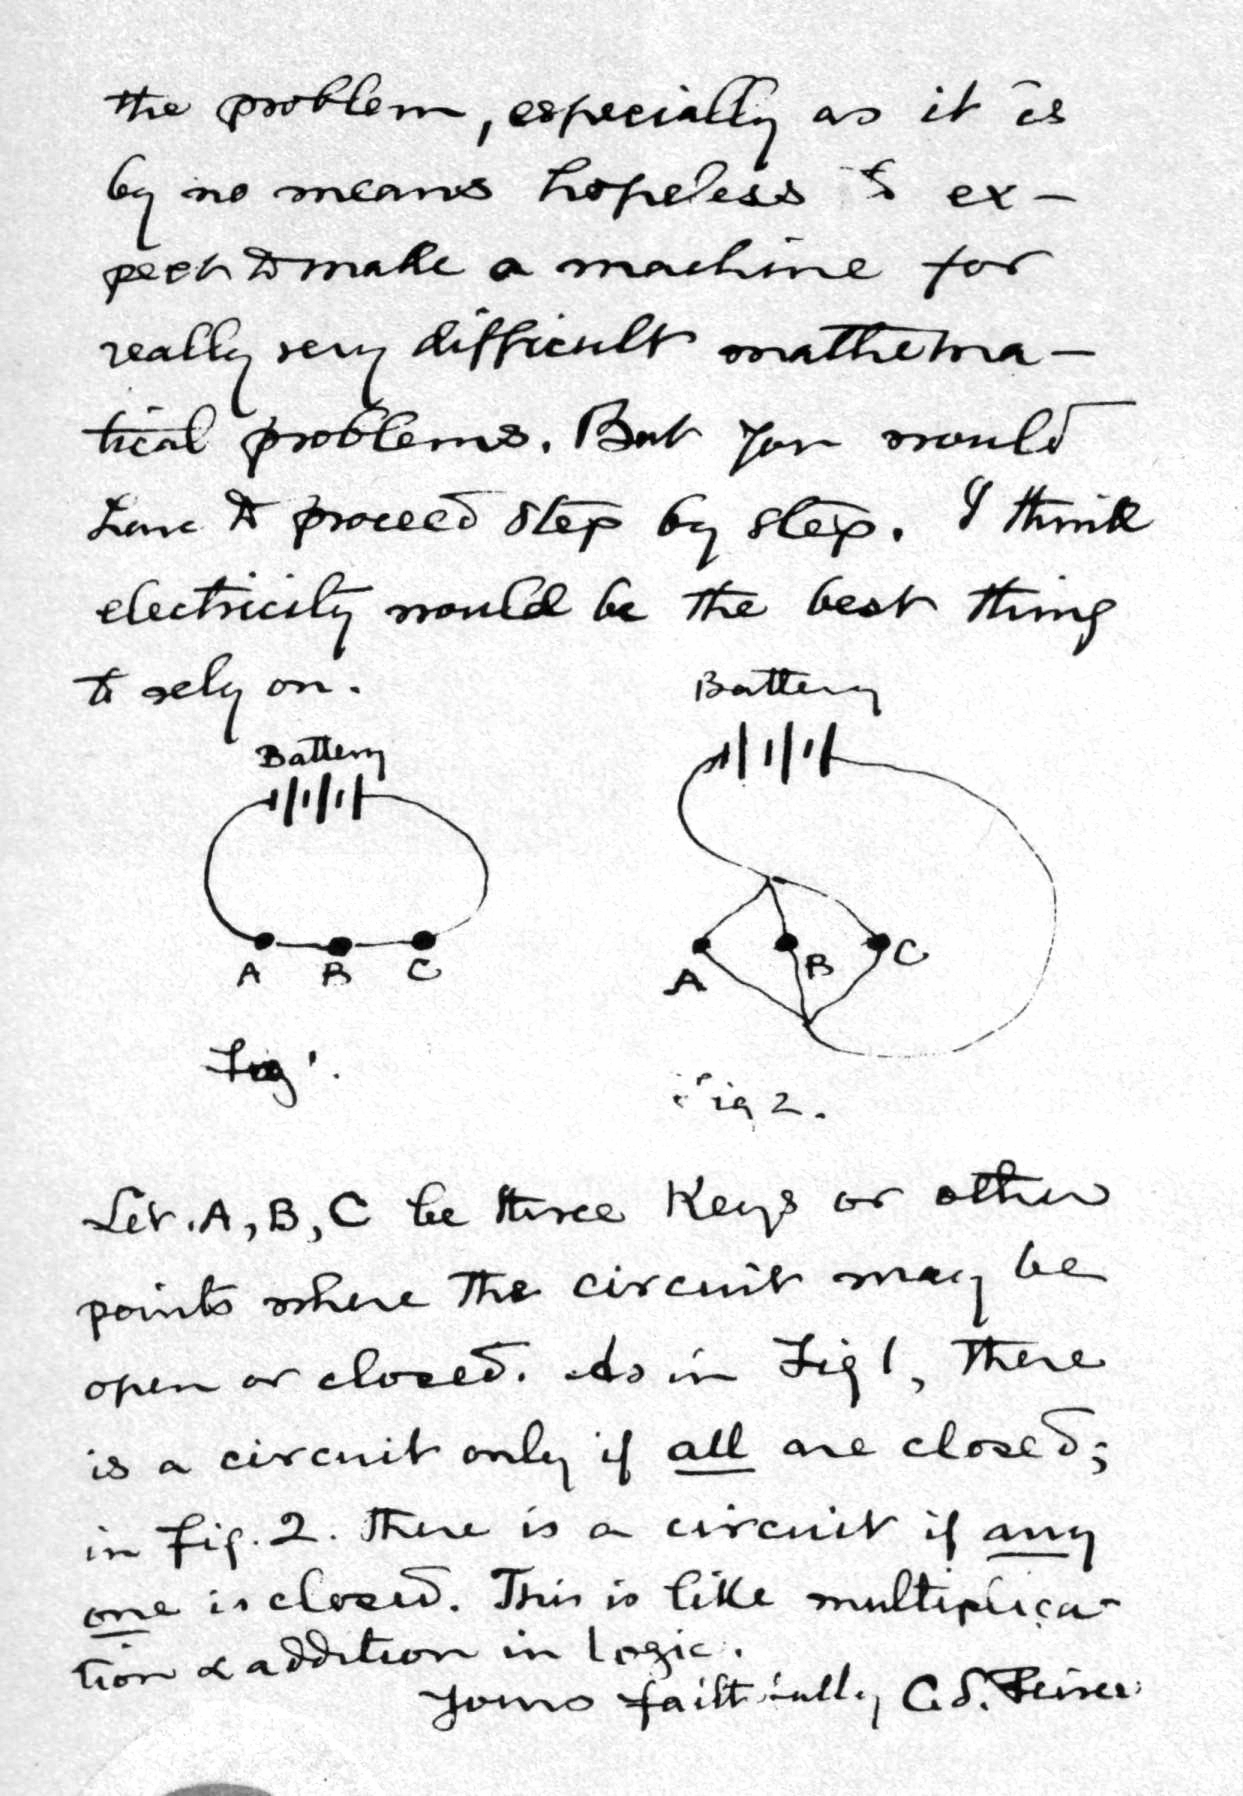 the problem, especially as it is
by no means hopeless to ex-
pect to make a machine for
really very difficult mathema-
tical problems. But you would
have to proceed step by step. I think
electricity would be the best thing
to rely on.
Battery
Battery
A B C
A B C
Fig 1.
Fig 2.
Let A, B, C be three keys or other
points where the circuit may be
open or closed. As in Fig 1, there
is a circuit only if all are closed;
in Fig. 2. there is a circuit if any
one is closed. This is like multiplica-
tion & addition in logic.
Yours faithfully C.S. Peirce